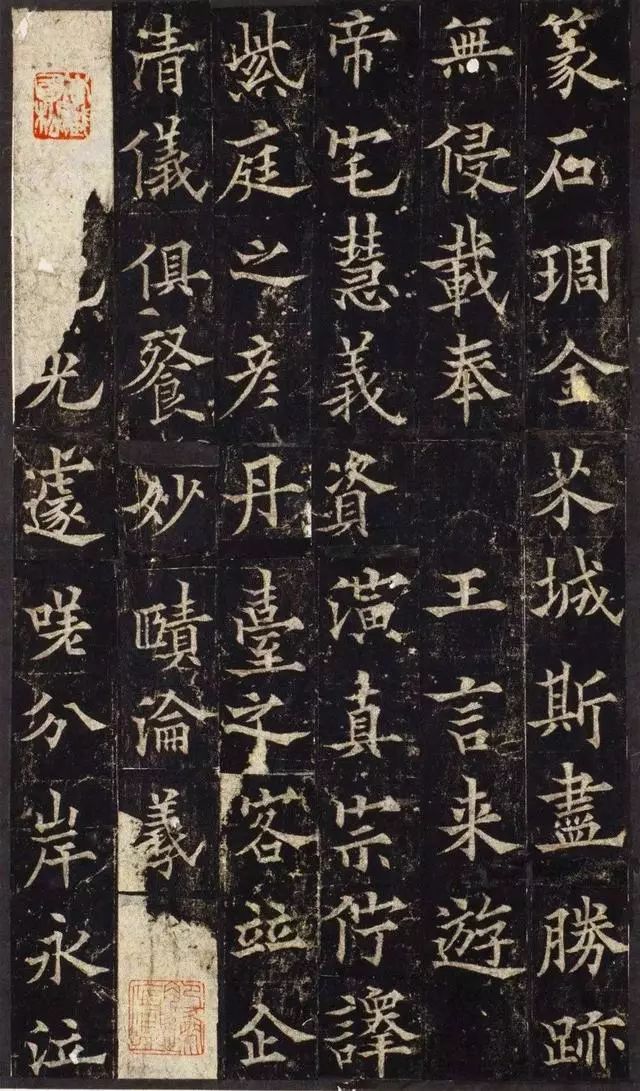 篆石琱金芥城斯盡勝跡
無侵載奉王言来遊
帝宅慧義資演真宗佇譯
紫庭之彦丹臺之客並企
清儀俱餐妙賾淪羲
光遽嗟分岸永泣